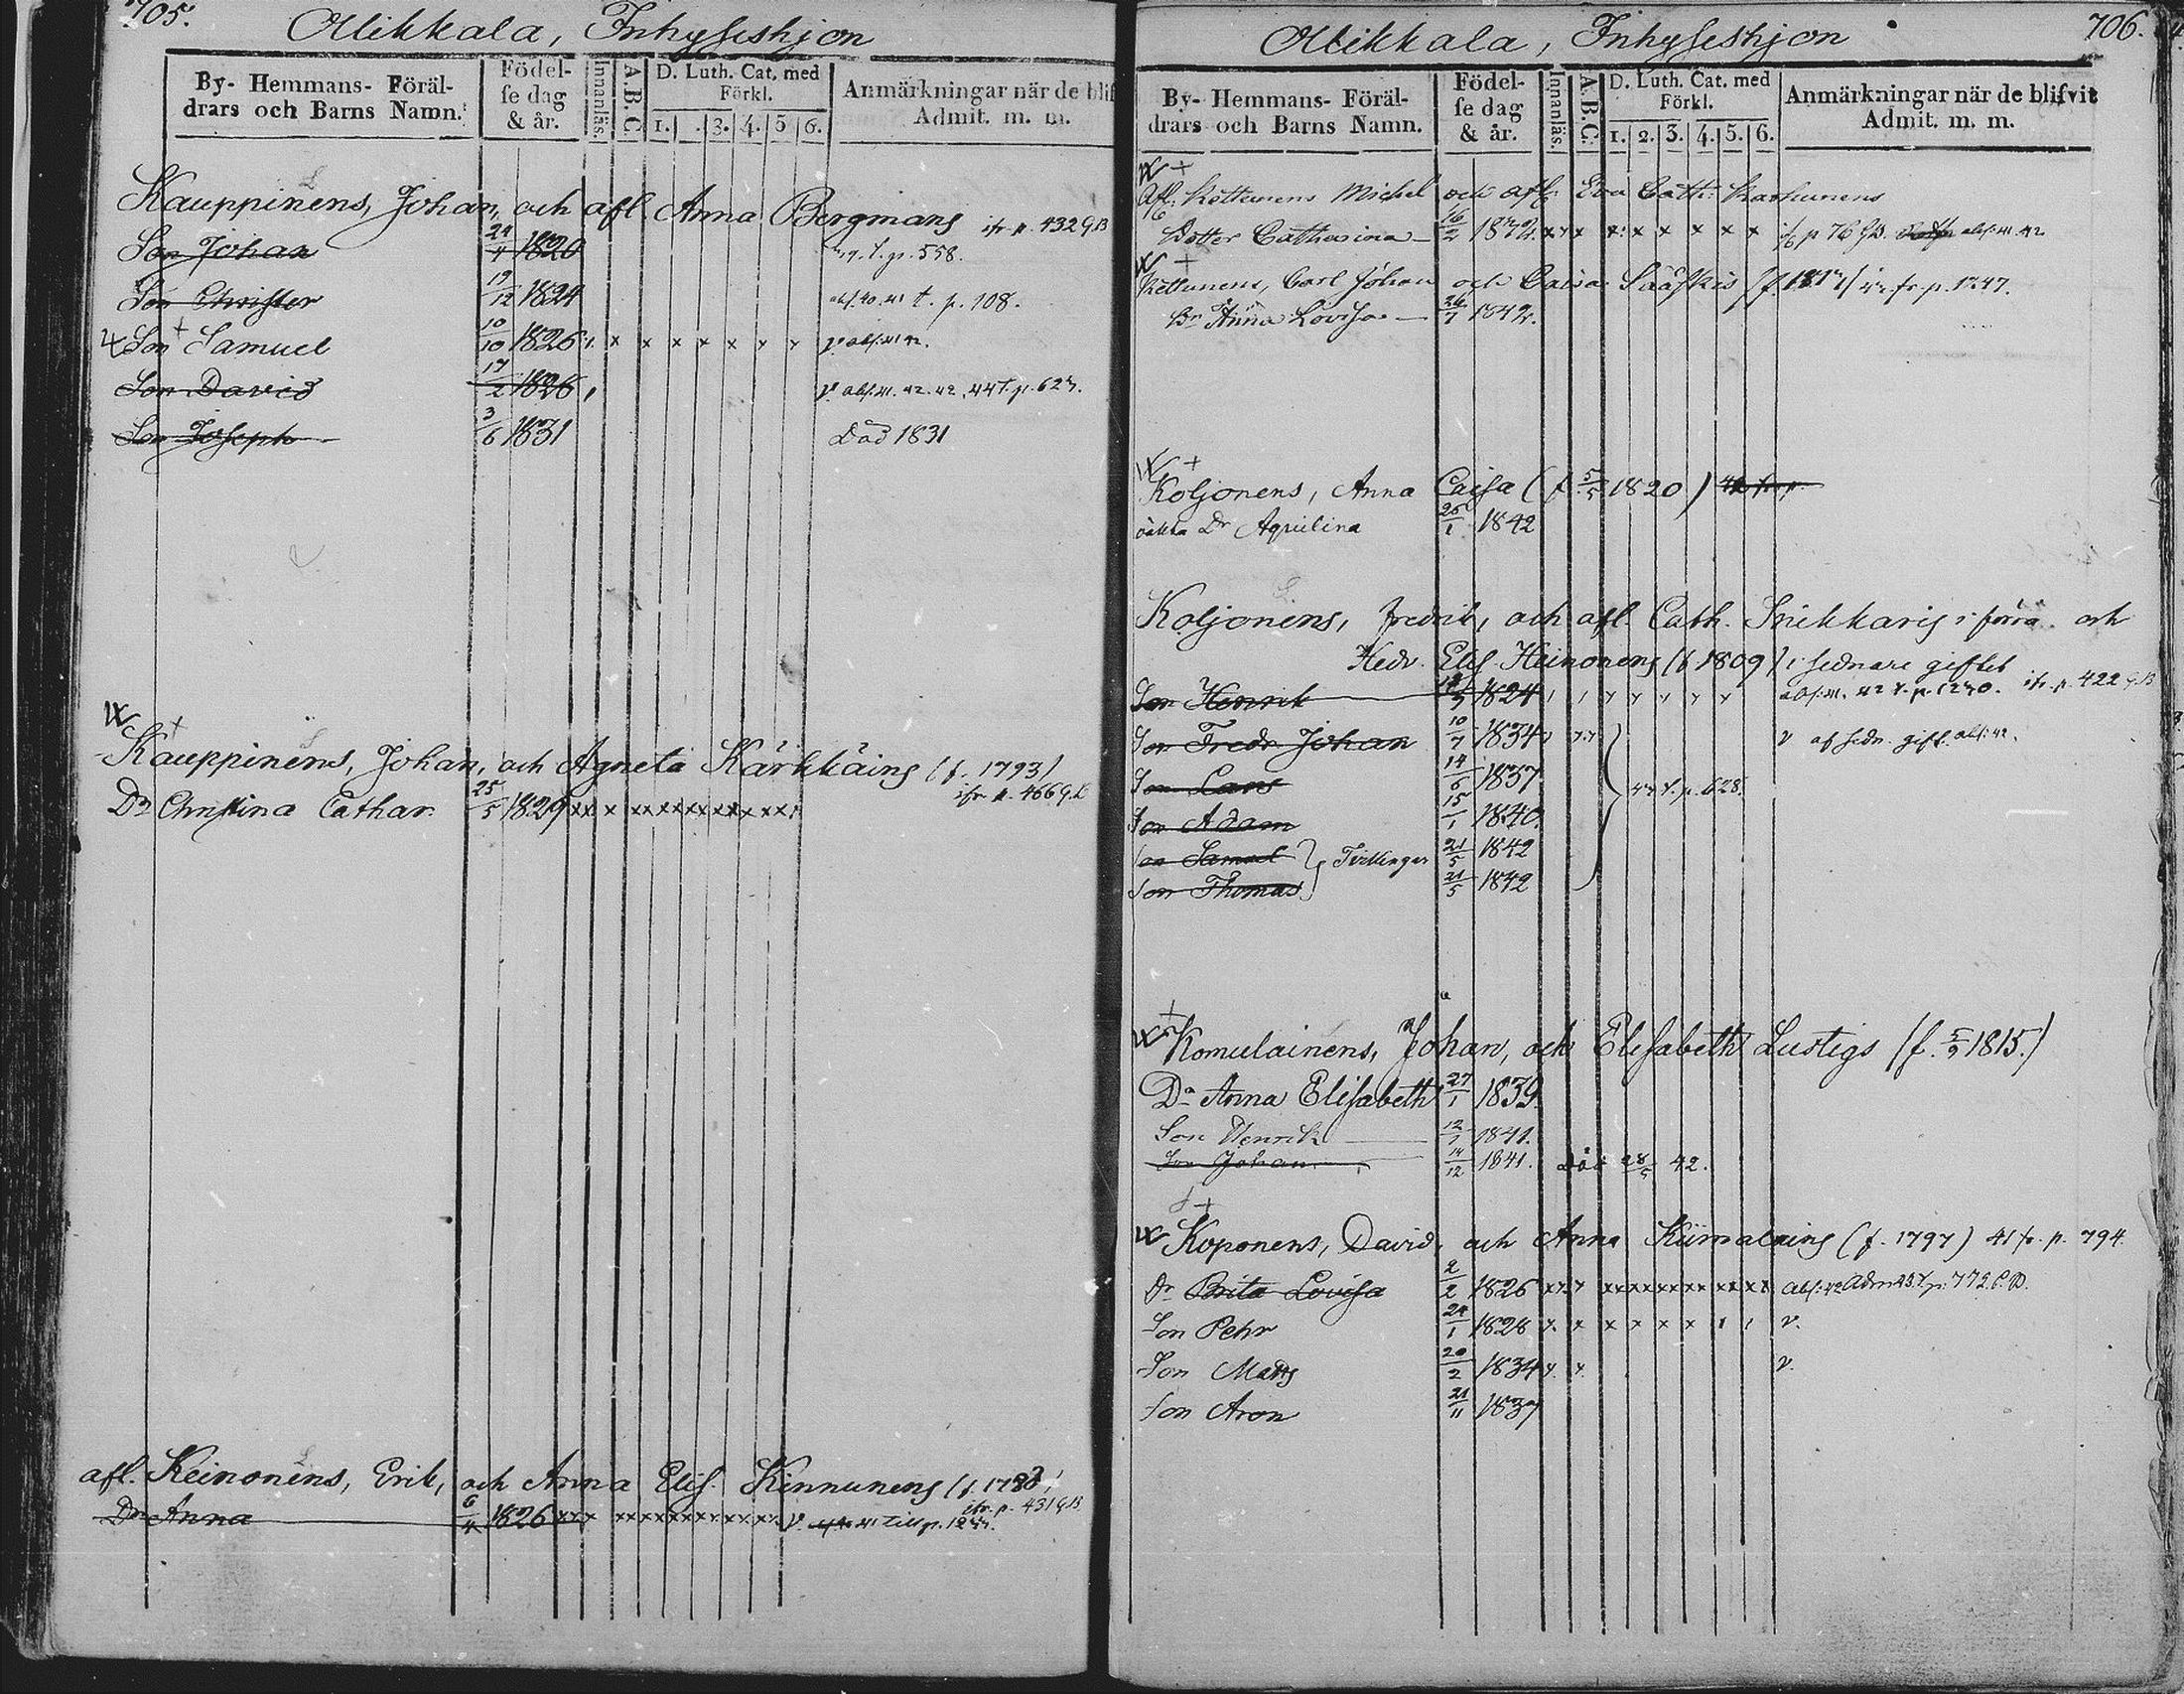 705.
Mikkala, Inhyseshjon
By- Hemmans- Föräl-
drars och Barns Namn.
Födel-
se dag
& år.
Innanläs.
A.B.C
D. Luth. Cat. med
Förkl.
1. 3. 4. 5 6.
Anmärkningar när de blif
Admit. m. m.
Kauppinens, Johan, och afl. Anna Bergmans ifr. p. 432 G.B
Son Johan 24/4 1820 p. 558.
Son Christer 19/12 1824 abs. 40. 41 t. p. 108.
Son Samuel 10/10 1826 x x x x x x x v. abs. 41 42.
Son David 17/2 1826 v. abs. 41. 42. 42. 44 t. p. 627.
Son Joseph 3/6 1831 Död 1831
Kauppinens, Johan, och Agneta Kärkkäins (f. 1793)
ifr. p. 466 G.B
Dr Christina Cathar. 25/5 1829 xx x xxxxxxxxxxx
afl. Keinonens, Erik, och Anna Elis. Kinnunens
ifr. p. 431 G.B.
Dr Anna 6/4 1826 xxx xxxxxxxxxxx v. 41 till p.
706.
Mikkala, Inhyseshjon
By- Hemmans- Föräl-
drars och Barns Namn.
Födel-
se dag
& år.
Innanläs.
A.B.C.
D. Luth. Cat. med
Förkl.
1. 2. 3. 4. 5. 6.
Anmärkningar när de blifvit
Admit. m. m.
Afl. Kettunens Michel och afl. Eva Cath:
Dotter Catharina 16/2 x x x x x x x x x p 76 G.B. abs. 41. 42
Kettunens, Carl Johan och Caisa Sääskis fr. p. 1247.
Dr Anna Lovisa 1842.
Koljonens, Anna Caisa (f. 5/5 1820)
oäkta Dr Aqvilina 26/1 1842
Koljonens, Fredrik, och afl. Cath. Snikkaris i förra och
Hedv. Elis. Heinonens (f. 1809) i sednare giftet
Son Henrik 1824 abs. 41. 42 t. p. 1270. ifr. p. 422 G.B
Son Fredr Johan 10/7 1834 v af sedn. gift. abs. 42.
Son Lars 14/6 1837 t. p. 628.
Son Adam 15/1 1840.
Son Samuel } Tvillingar 21/5 1842
Son Thomas 21/5 1842
Komulainens, Johan, och Elisabeth Lustigs (f. 5/9 1815.)
Dr Anna Elisabeth 27/1 1839.
Son Henrik 12/1 1841.
Son Johan 14/12 1841. död 28/5 42.
Koponens, David, och Anna Kiimalains (f. 1797) 41 fr. p. 794.
Dr Brita Lovisa 2/2 1826 xxx xxxxxxxx xxxx abs. 42 Adm 43. t. p. 772. C.B.
Son Pehr 24/1 1828 x. x x x x x v.
Son Matts 20/2 1834 x. x. v.
Son Aron 21/11 1837